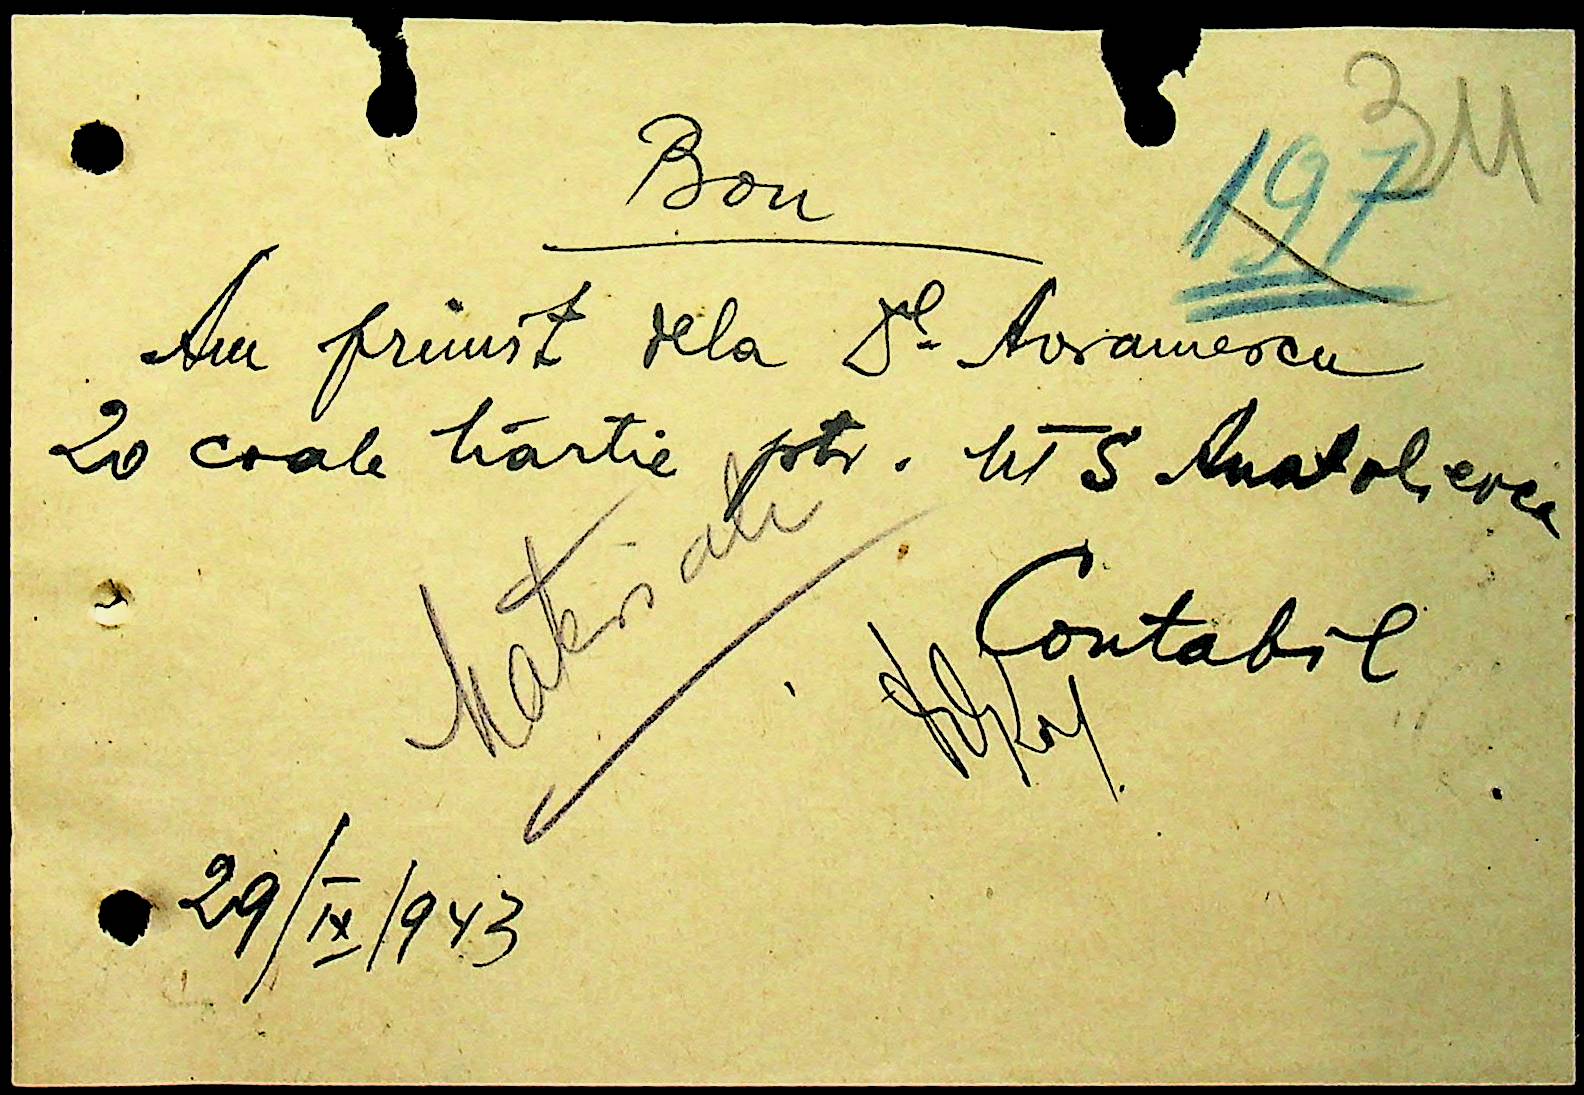 311
197
Bon
Am primit dela Dl. Avramescu
20 coale hârtie ptr. MTS Anatolievca
Materiale
Contabil
29/IX/1943